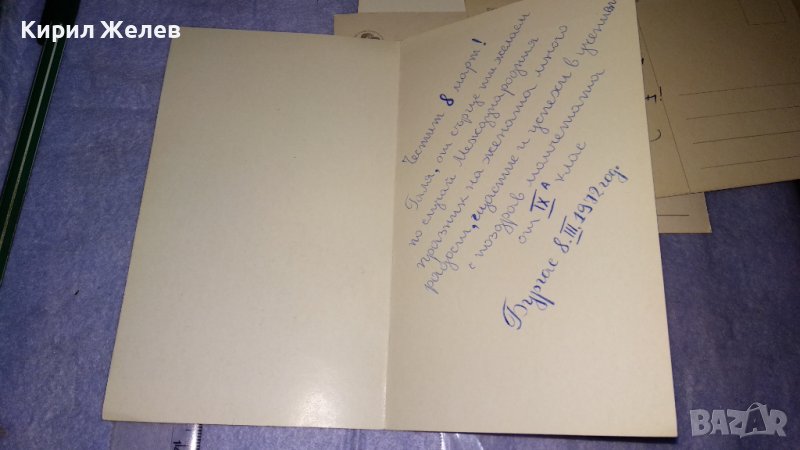 Кирил Желев
Честит 8 март!
Галя, от сърце ти желаем
по случай Международния
празник на жената много
радост, щастие и успехи в учението
с поздрав момчетата
от IX А клас
Бургас 8.III.1972 год.
BAZAR
bg